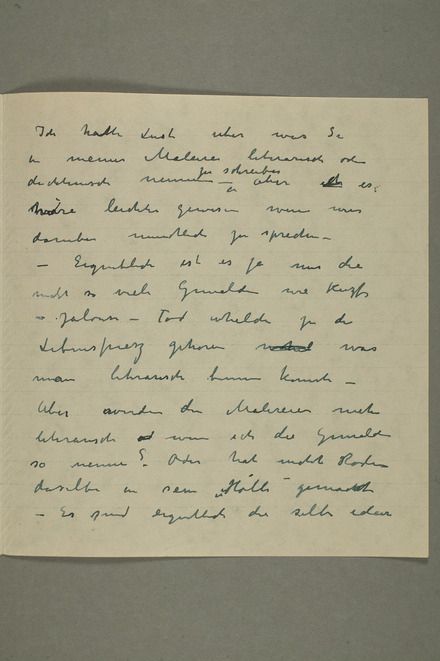 Ich hatte Lust über was Sie
in meiner Malerei literarisch oder
dichterisch nennen zu schreiben – aber es
wäre leichter gewesen wenn wir
darüber mündlich zu sprechen –
– Eigentlich ist es ja nur die
nicht so viele Gemälde wie Kuss
– Jalousie – Tod welche zu
Lebensfries gehören was
man literarisch nennen konnte –
Aber wurden die Malereien
literarisch wenn ich die Gemälde
so nenne? Oder hat nicht Rodin
dasselbe in sein „Hölle“ gemacht
– Es sind eigentlich die selbe ideer